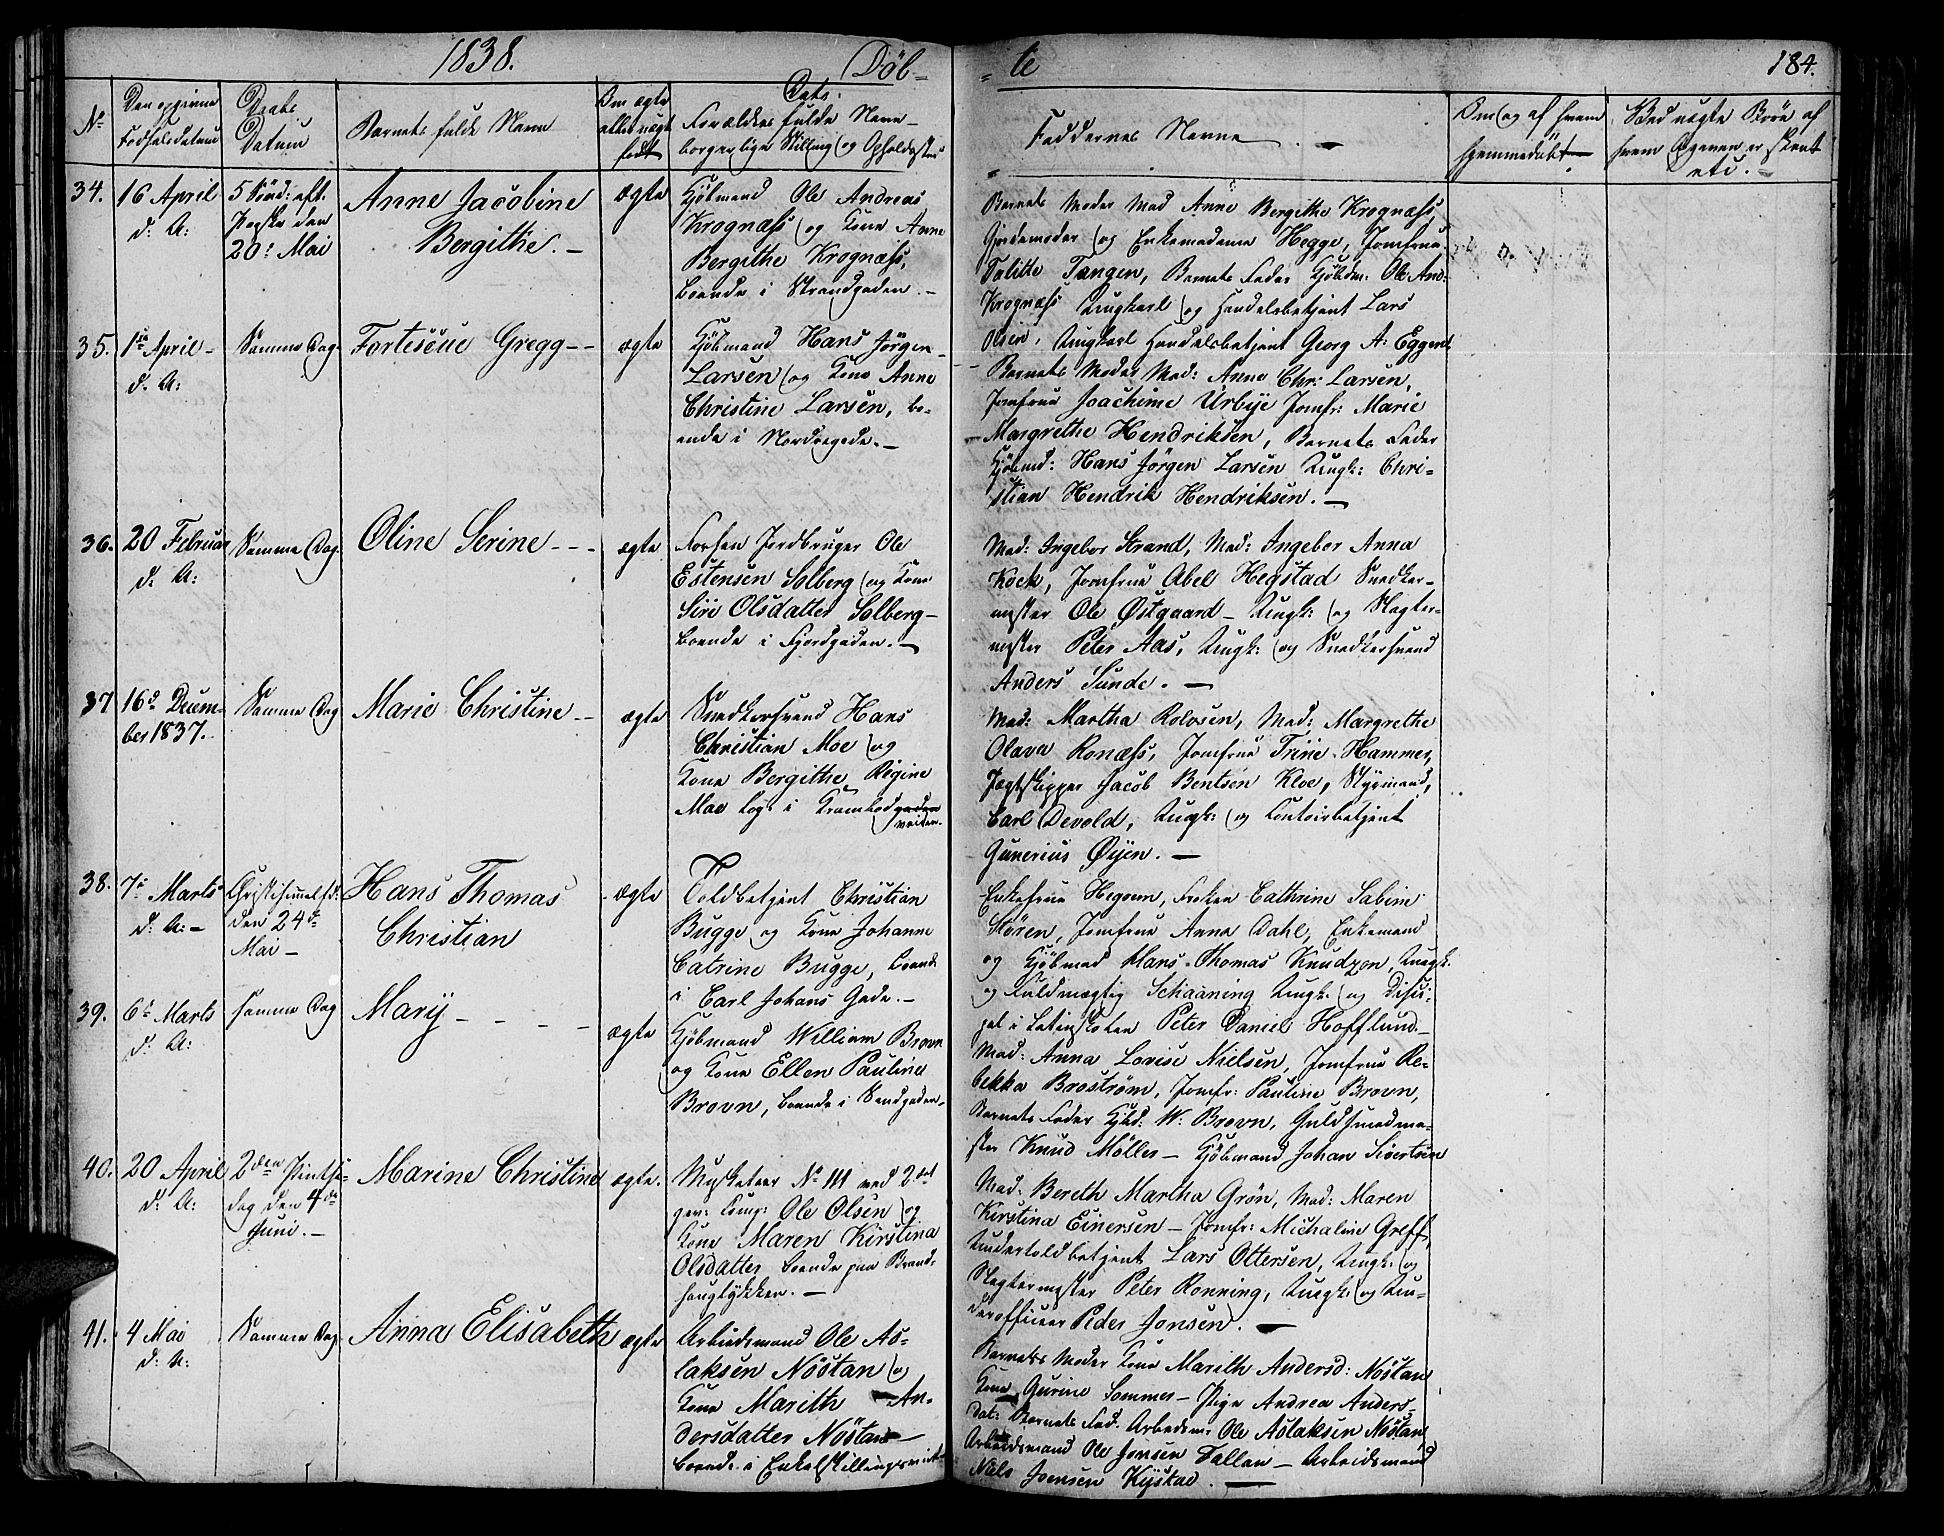 1838.
Døb-
-te
184.
No
Den opgivne
Fødselsdatum
Daabs
Datum
Barnets fulde Navn
Om ægte
eller uægte
født
Dets
Forældres fulde Navn
borgerlige Stilling og Opholdssted
Faddernes Navne
Om og af hvem
hjemmedøbt
Ved uægte Børn af
hvem Opgaven er skeet
etc.
34.
16 April
d: A:
5 Sønd: eft.
Paaske den
20: Mai
Anne Jacobine
Bergithe. -
ægte
Kjøbmand Ole Andreas
Krognæss og Kone Anne
Bergithe Krognæss,
boende i Strandgaden. -
Barnets Moder Mad Anne Bergithe Krognæss,
Gjordemoder og Enkemadame Hegge, Jomfrue
Talitte Tangen, Barnets Fader Kjøbdm: Ole And:
Krognæss Ungkarl og Handelsbetjent Lars
Olsen, Ungkarl Handelsbetjent Georg A: Eggen
35.
April -
d. A:
Samme Dag
Fortescue Gregg - -
ægte
Kjøbmand Hans Jørgen
Larsen og Kone Anne
Christine Larsen, bo-
ende i Nordregade. -
Barnets Moder Mad: Anne Chr: Larsen,
Jomfrue Joachime Urbye Jomfr: Marie
Margrethe Hendriksen, Barnets Fader
Kjøbmd: Hans Jørgen Larsen Ungk: Chri-
stian Hendrik Hendriksen. -
36.
20 Februar
d: A:
Samme Dag
Oline Serine - - -
ægte
Jordbruger Ole
Estensen Solberg og Kone
Siri Olsdatter Solberg -
boende i Fjordgaden. -
Mad: Ingebor Strand, Mad: Ingebor Anna
Kock, Jomfrue Abel Hegstad Snedker-
mester Ole Østgaard - Ungk: og Slagter-
mester Peter Aas, Ungk: og Snedkersvend
Anders Sunde. -
37
16de Decem-
ber 1837.
Samme Dag
Marie Christine - -
ægte
Snedkersvend Hans
Christian Moe og
Kone Bergithe Regine
Moe Log: i Krambodgaden
veiten.
Mad: Martha Rolvsen, Mad: Margrethe
Olava Ronæss, Jomfrue Trine Hammer,
Jægtskipper Jacob Bentsen Kloe, Styrmand,
Carl Devold, Ungk: og Contoirbetjent
Gunerius Øyen. -
38.
7: Marts
d: A: -
Christihimmelfd:
den 24de
Mai -
Hans Thomas
Christian
ægte
Toldbetjent Christian
Bugge og Kone Johanne
Catrine Bugge, boende
i Carl Johans Gade. -
Enkefrue Hegrum, Frøken Cathrine Sabine
Støren, Jomfrue Anna Dahl, Enkemand
og Kjøbmand Hans Thomas Knudzon, Ungk:
og Fuldmægtig Schaaning Ungk: og Disci-
pel i Latinskolen Peter Daniel Hofflund -
39.
6te Marts
d: A:
samme Dag
Mary - - - -
ægte
Kjøbmand William Brovn
og Kone Ellen Pauline
Brovn, boende i Sandgaden -
Mad: Anna Lovise Nielsen, Jomfrue Re-
bekka Broström, Jomfr: Pauline Brovn,
Barnets Fader Kjbd: W. Brovn, Guldsmedme-
ster Knud Møller - Kjøbmand Johan Sivertsen
40.
20 April
d: A:
2den Pintse-
dag den 4de
Juni. -
Marine Christine
ægte.
Musketeer No 111 ved 2det
gev: Comp: Ole Olsen og
Kone Maren Kirstina
Olsdatter boende paa Brand-
houglykken. -
Mad: Bereth Martha Grön, Mad: Maren
Kirstina Einersen - Jomfr: Michaline Greff,
Undertoldbetjent Lars Ottersen, Ungk: og
Slagtermester Peter Ronning, Ungk: og Un-
derofficeer Peder Jonsen. -
41.
4 Mai
d: A:
Samme Dag
Anna Elisabeth
ægte
Arbeidsmand Ole As-
laksen Nöstan og
Kone Marith An-
dersdatter Nöstan -
boende i Enkelskillingsveit
Barnets Moder Kone Marith Andersd: Nöstan
Kone Gurine Sommer - Pige Andrea Anders-
dat: Barnets Fad. Arbeidsm: Ole Aslaksen Nöstan,
Arbeidsmand Ole Jonsen Tallan - Arbeidsmand
Niels Joensen Kystad. -